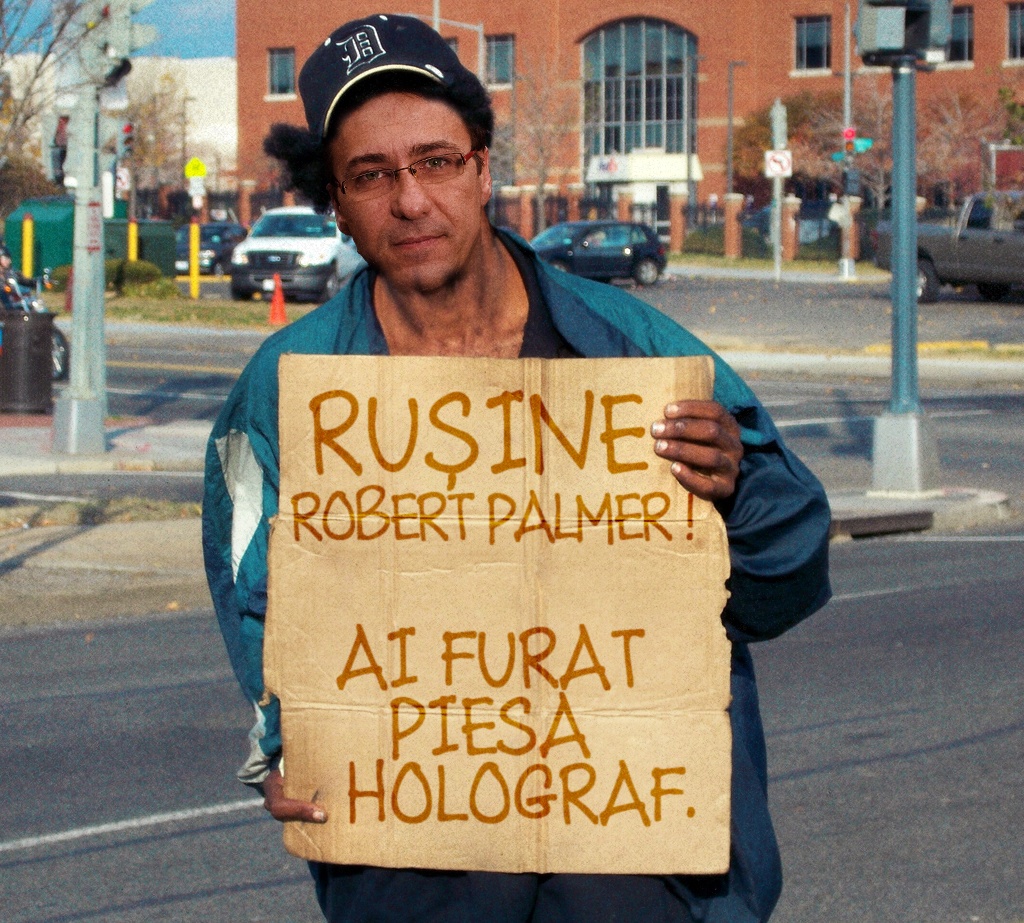 RUȘINE
ROBERT PALMER!
AI FURAT
PIESA
HOLOGRAF.